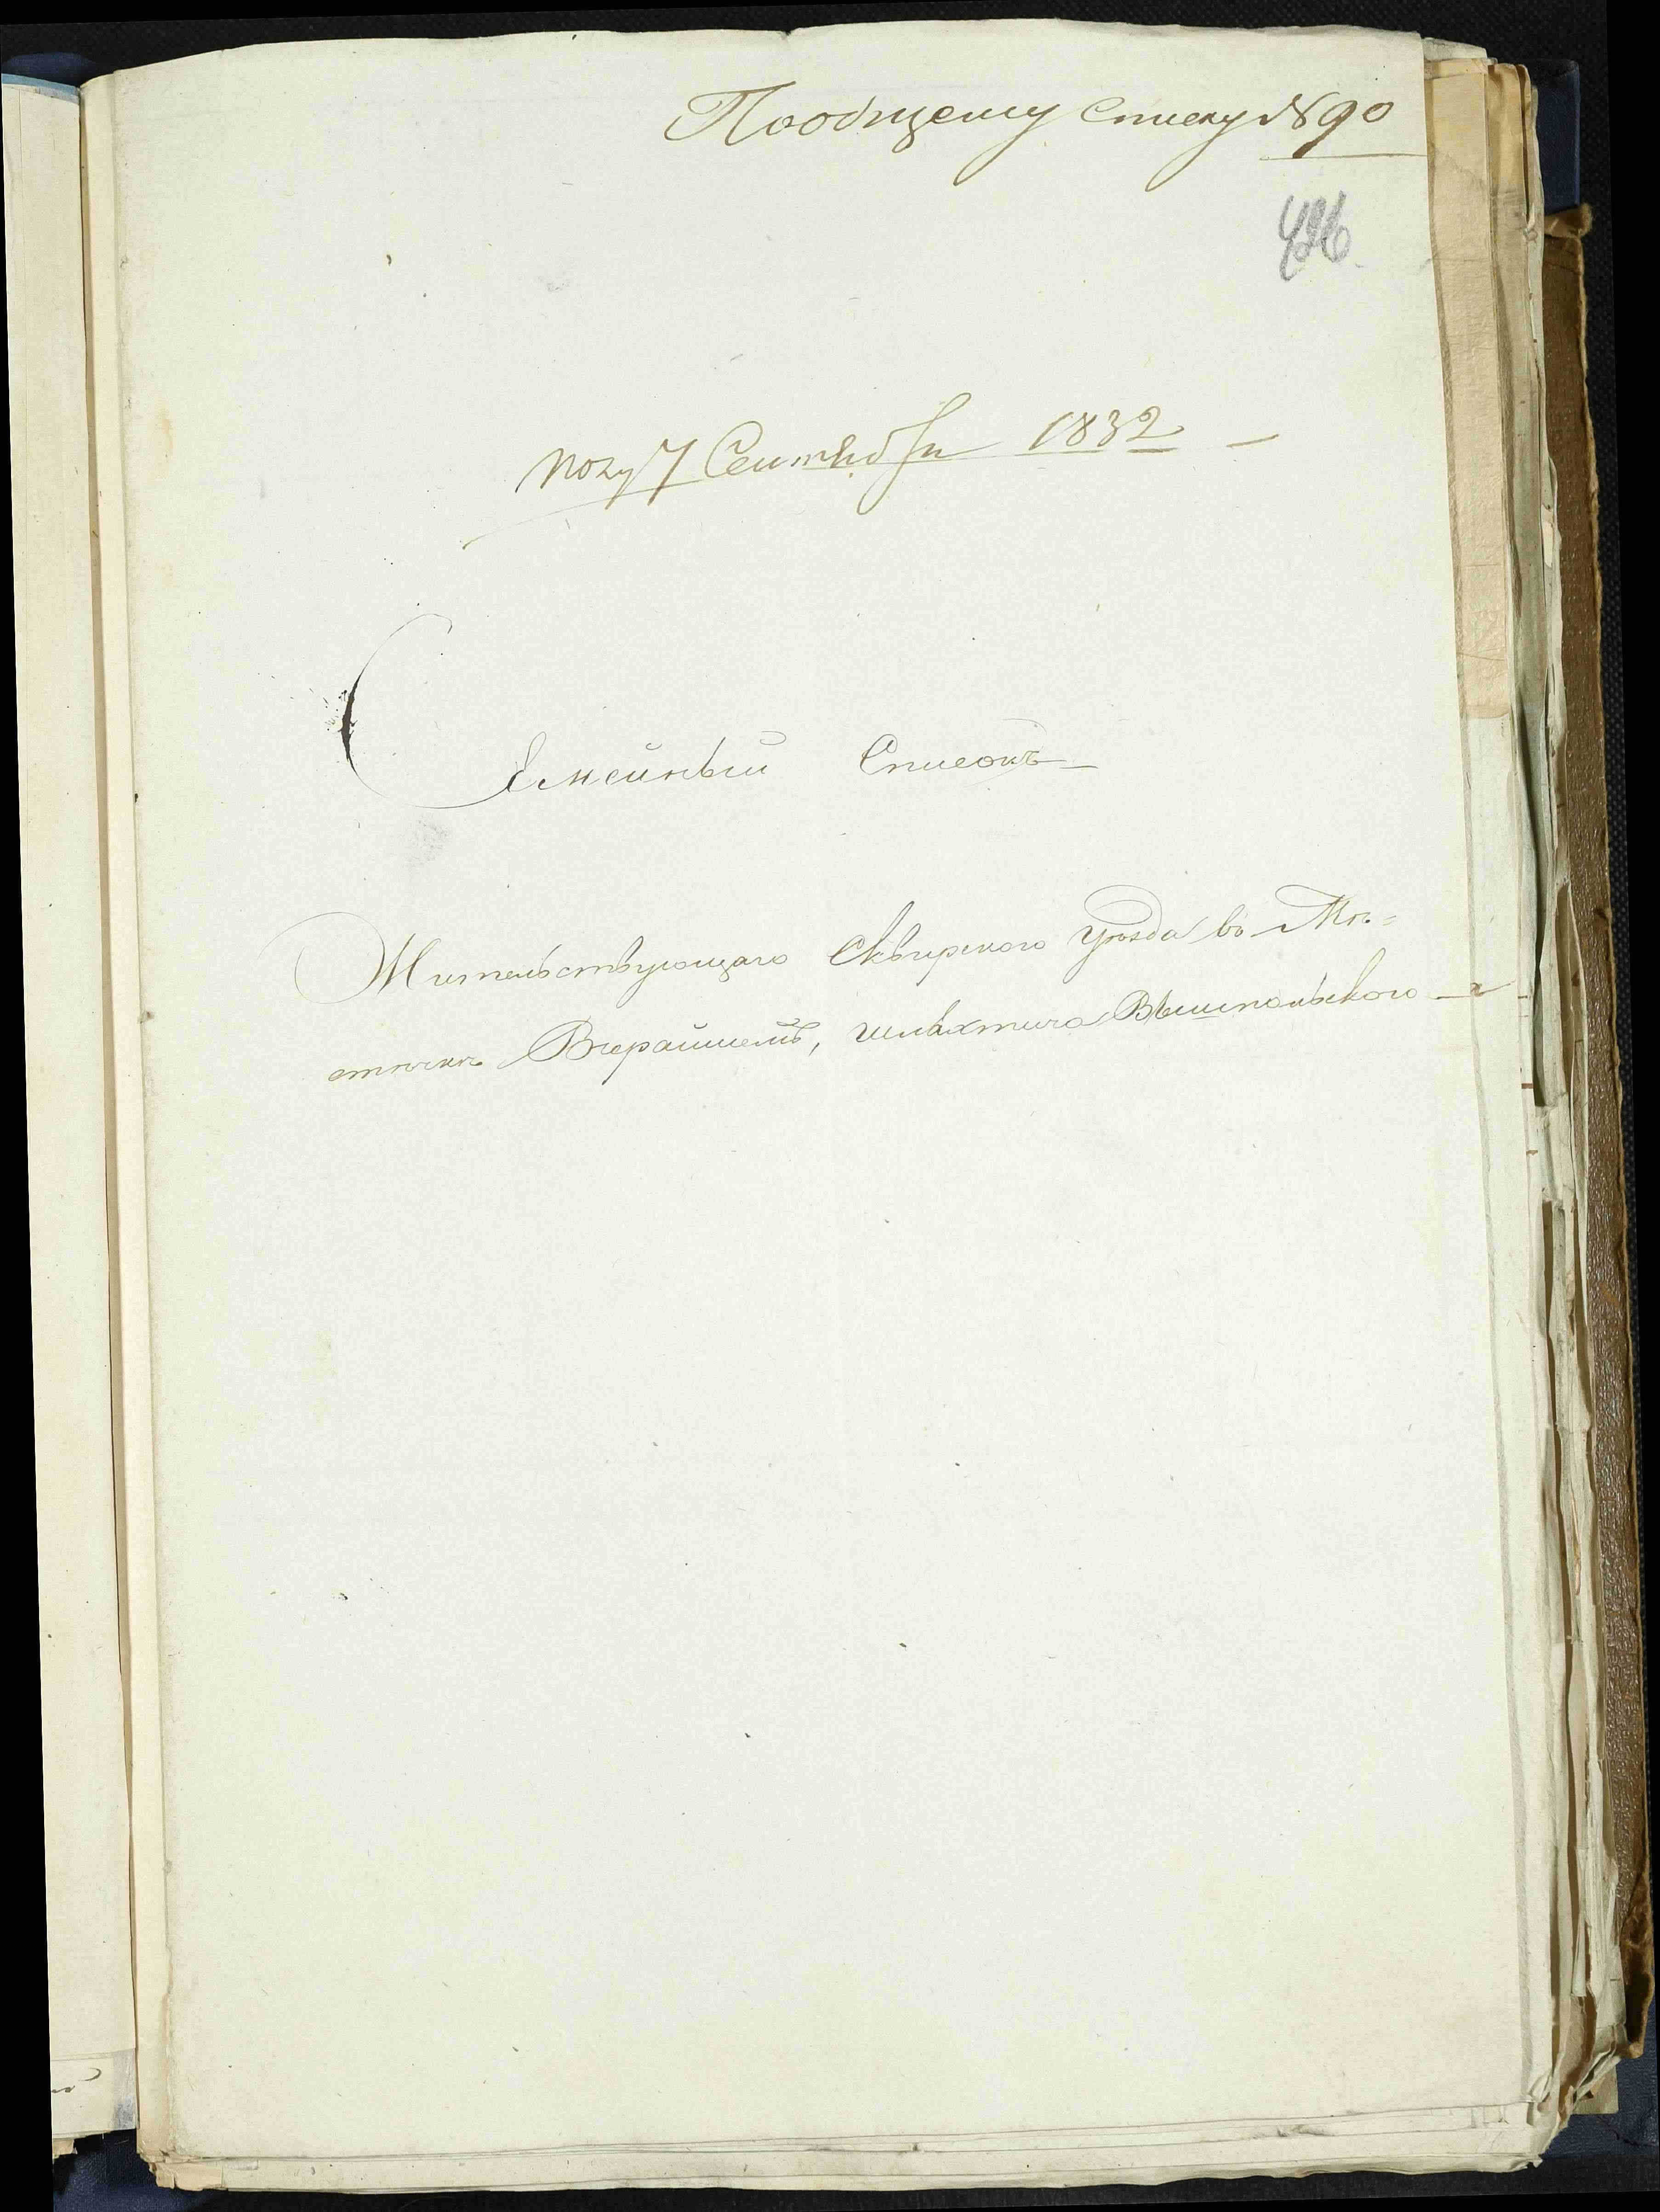 Пообщему списку № 90
426
7 Сентября 1832
Семейный Списокъ
Жительствующаго Сквирского уѣзда въ Мѣ=
стечкѣ Вчерайшемъ, шляхтича Вышпольского